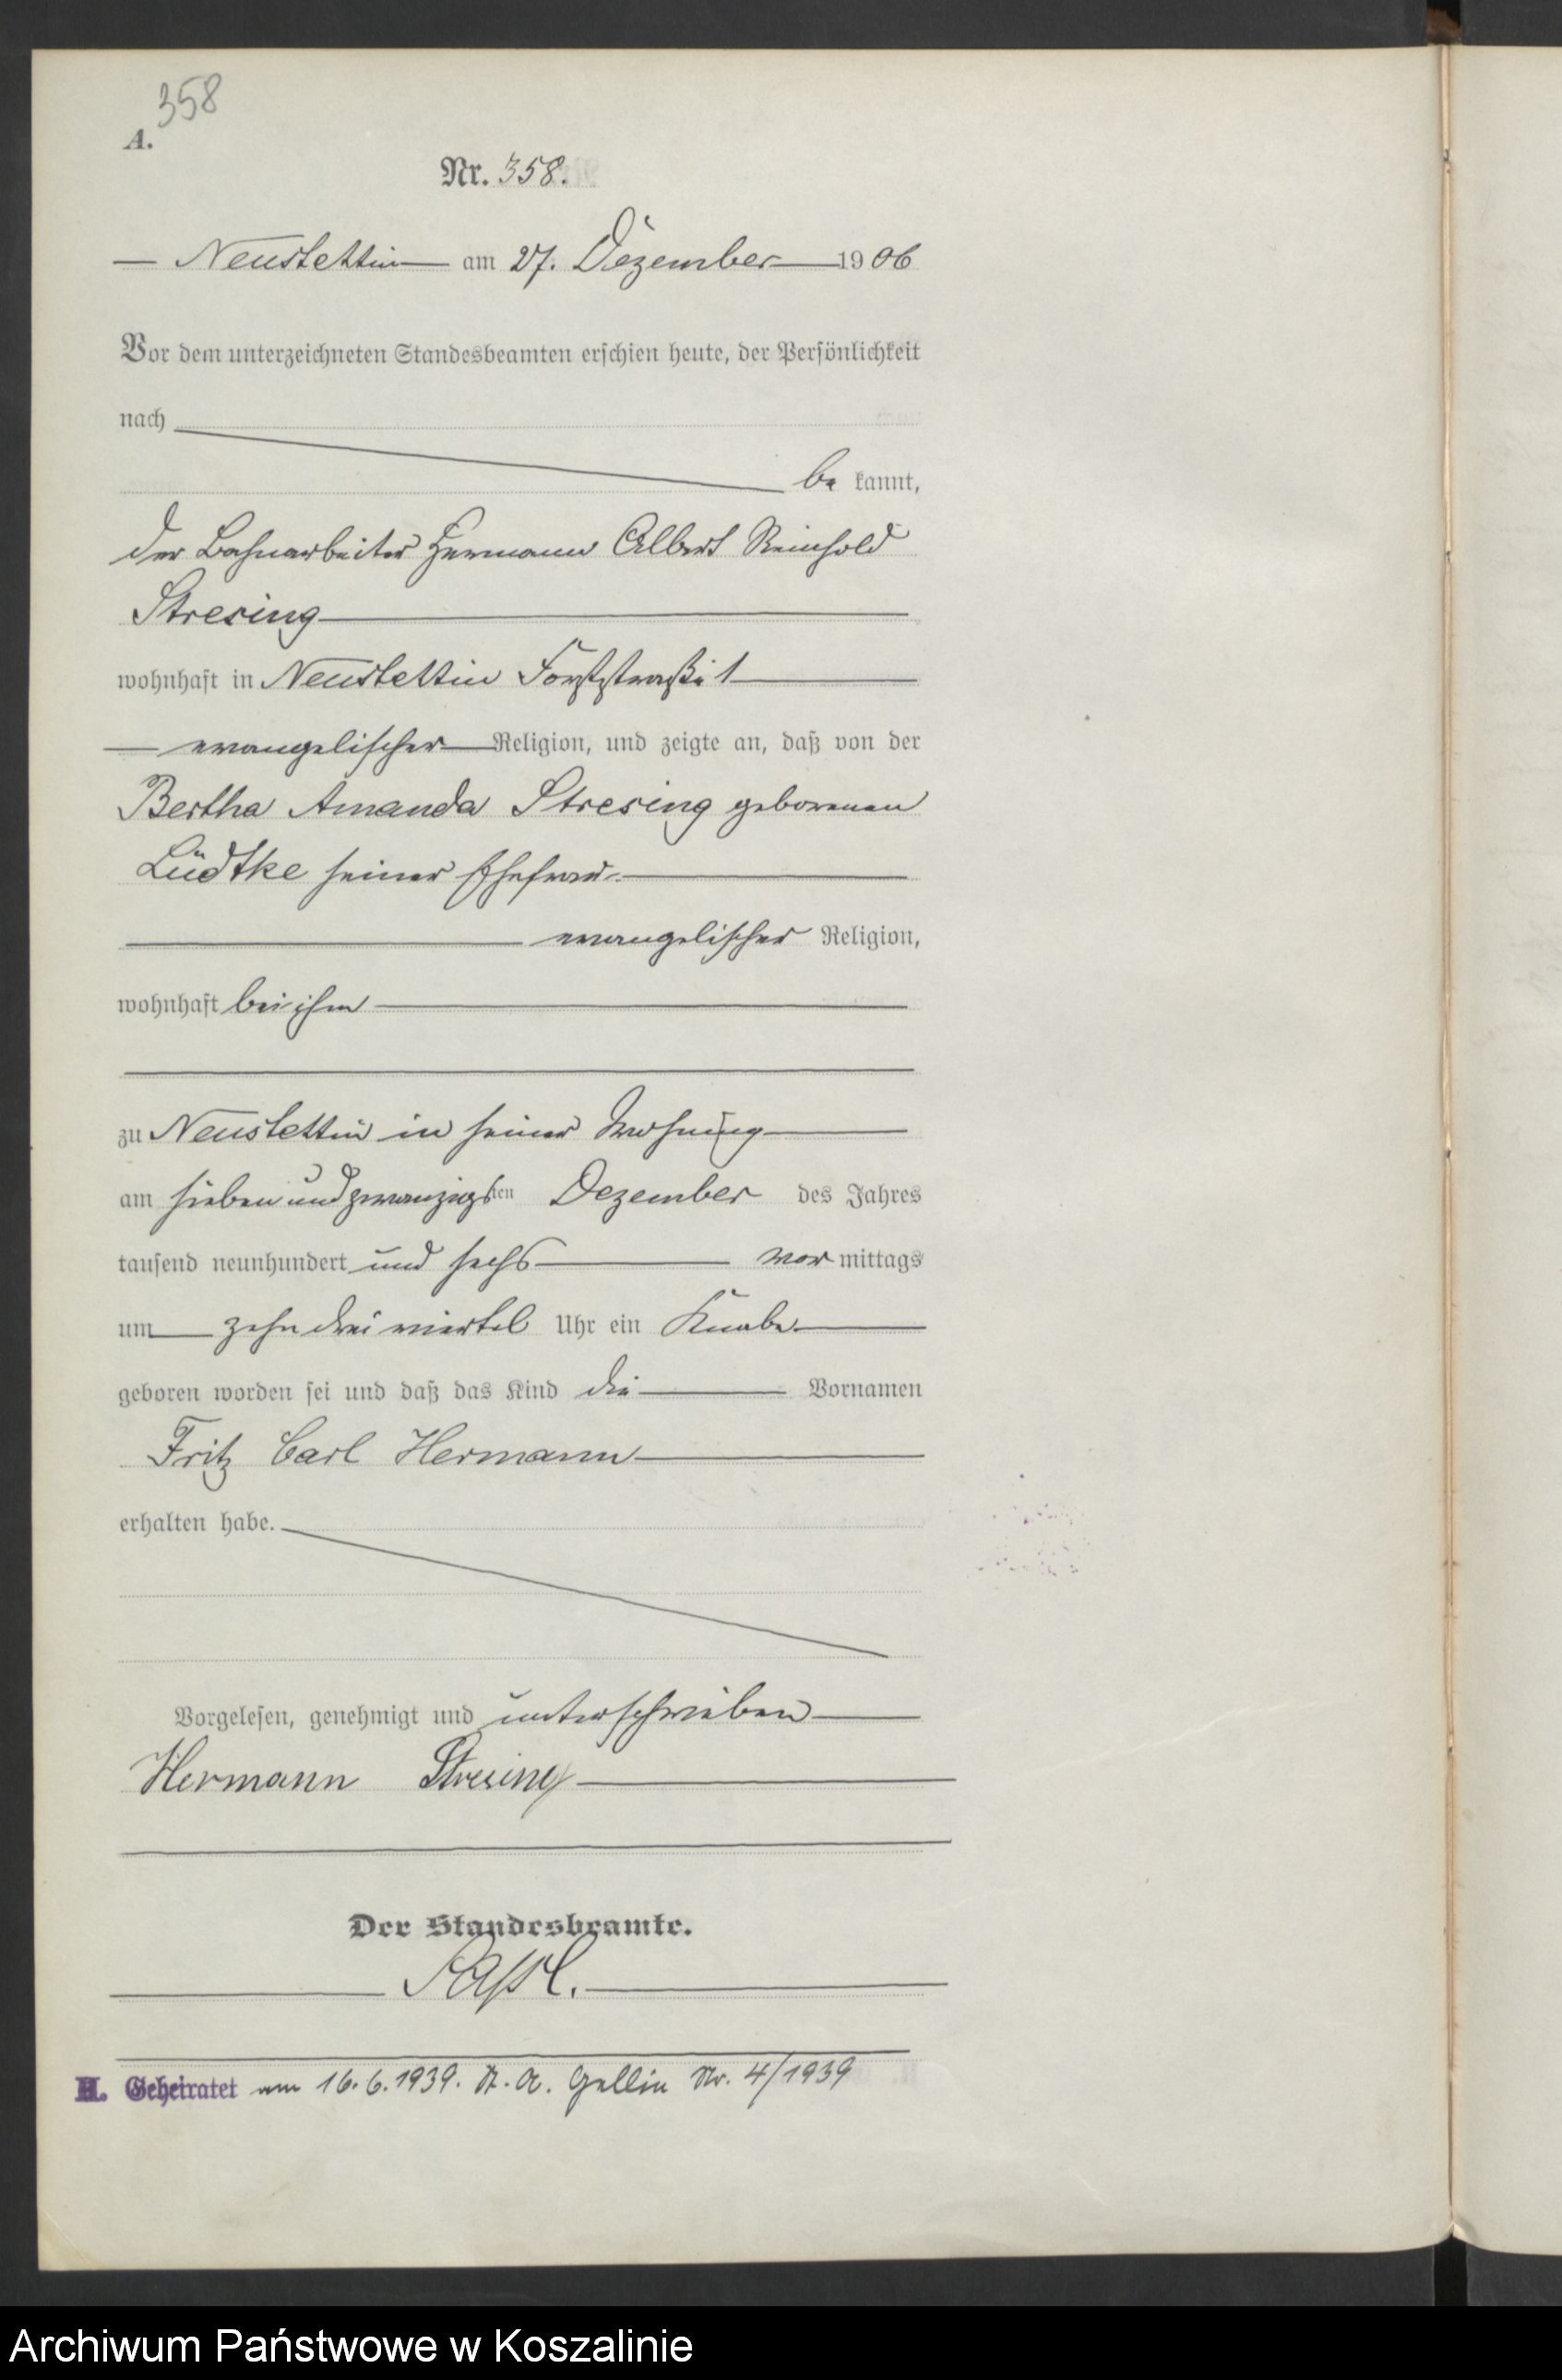 358
A.
Nr. 358.
Neustettin am 27. Dezember 1906
Vor dem unterzeichneten Standesbeamten erschien heute, der Persönlichkeit
nach
be kannt,
der Bahnarbeiter Hermann Albert Reinhold
Stresing
wohnhaft in Neustettin Forststraße 1
evangelischer Religion, und zeigte an, daß von der
Bertha Amanda Stresing geborenen
Lüdtke seiner Ehefrau
evangelischer Religion,
wohnhaft bei ihm
zu Neustettin in seiner Wohnung
am sieben und zwanzigsten Dezember des Jahres
tausend neunhundert und sechs vor mittags
um zehn drei viertel Uhr ein Knabe
geboren worden sei und daß das Kind die Vornamen
Fritz Carl Hermann
erhalten habe.
Vorgelesen, genehmigt und unterschrieben
Hermann Stresing
Der Standesbeamte.
H. Geheiratet am 16.6.1939. St. A. Gellin Nr. 4/1939
Archiwum Państwowe w Koszalinie